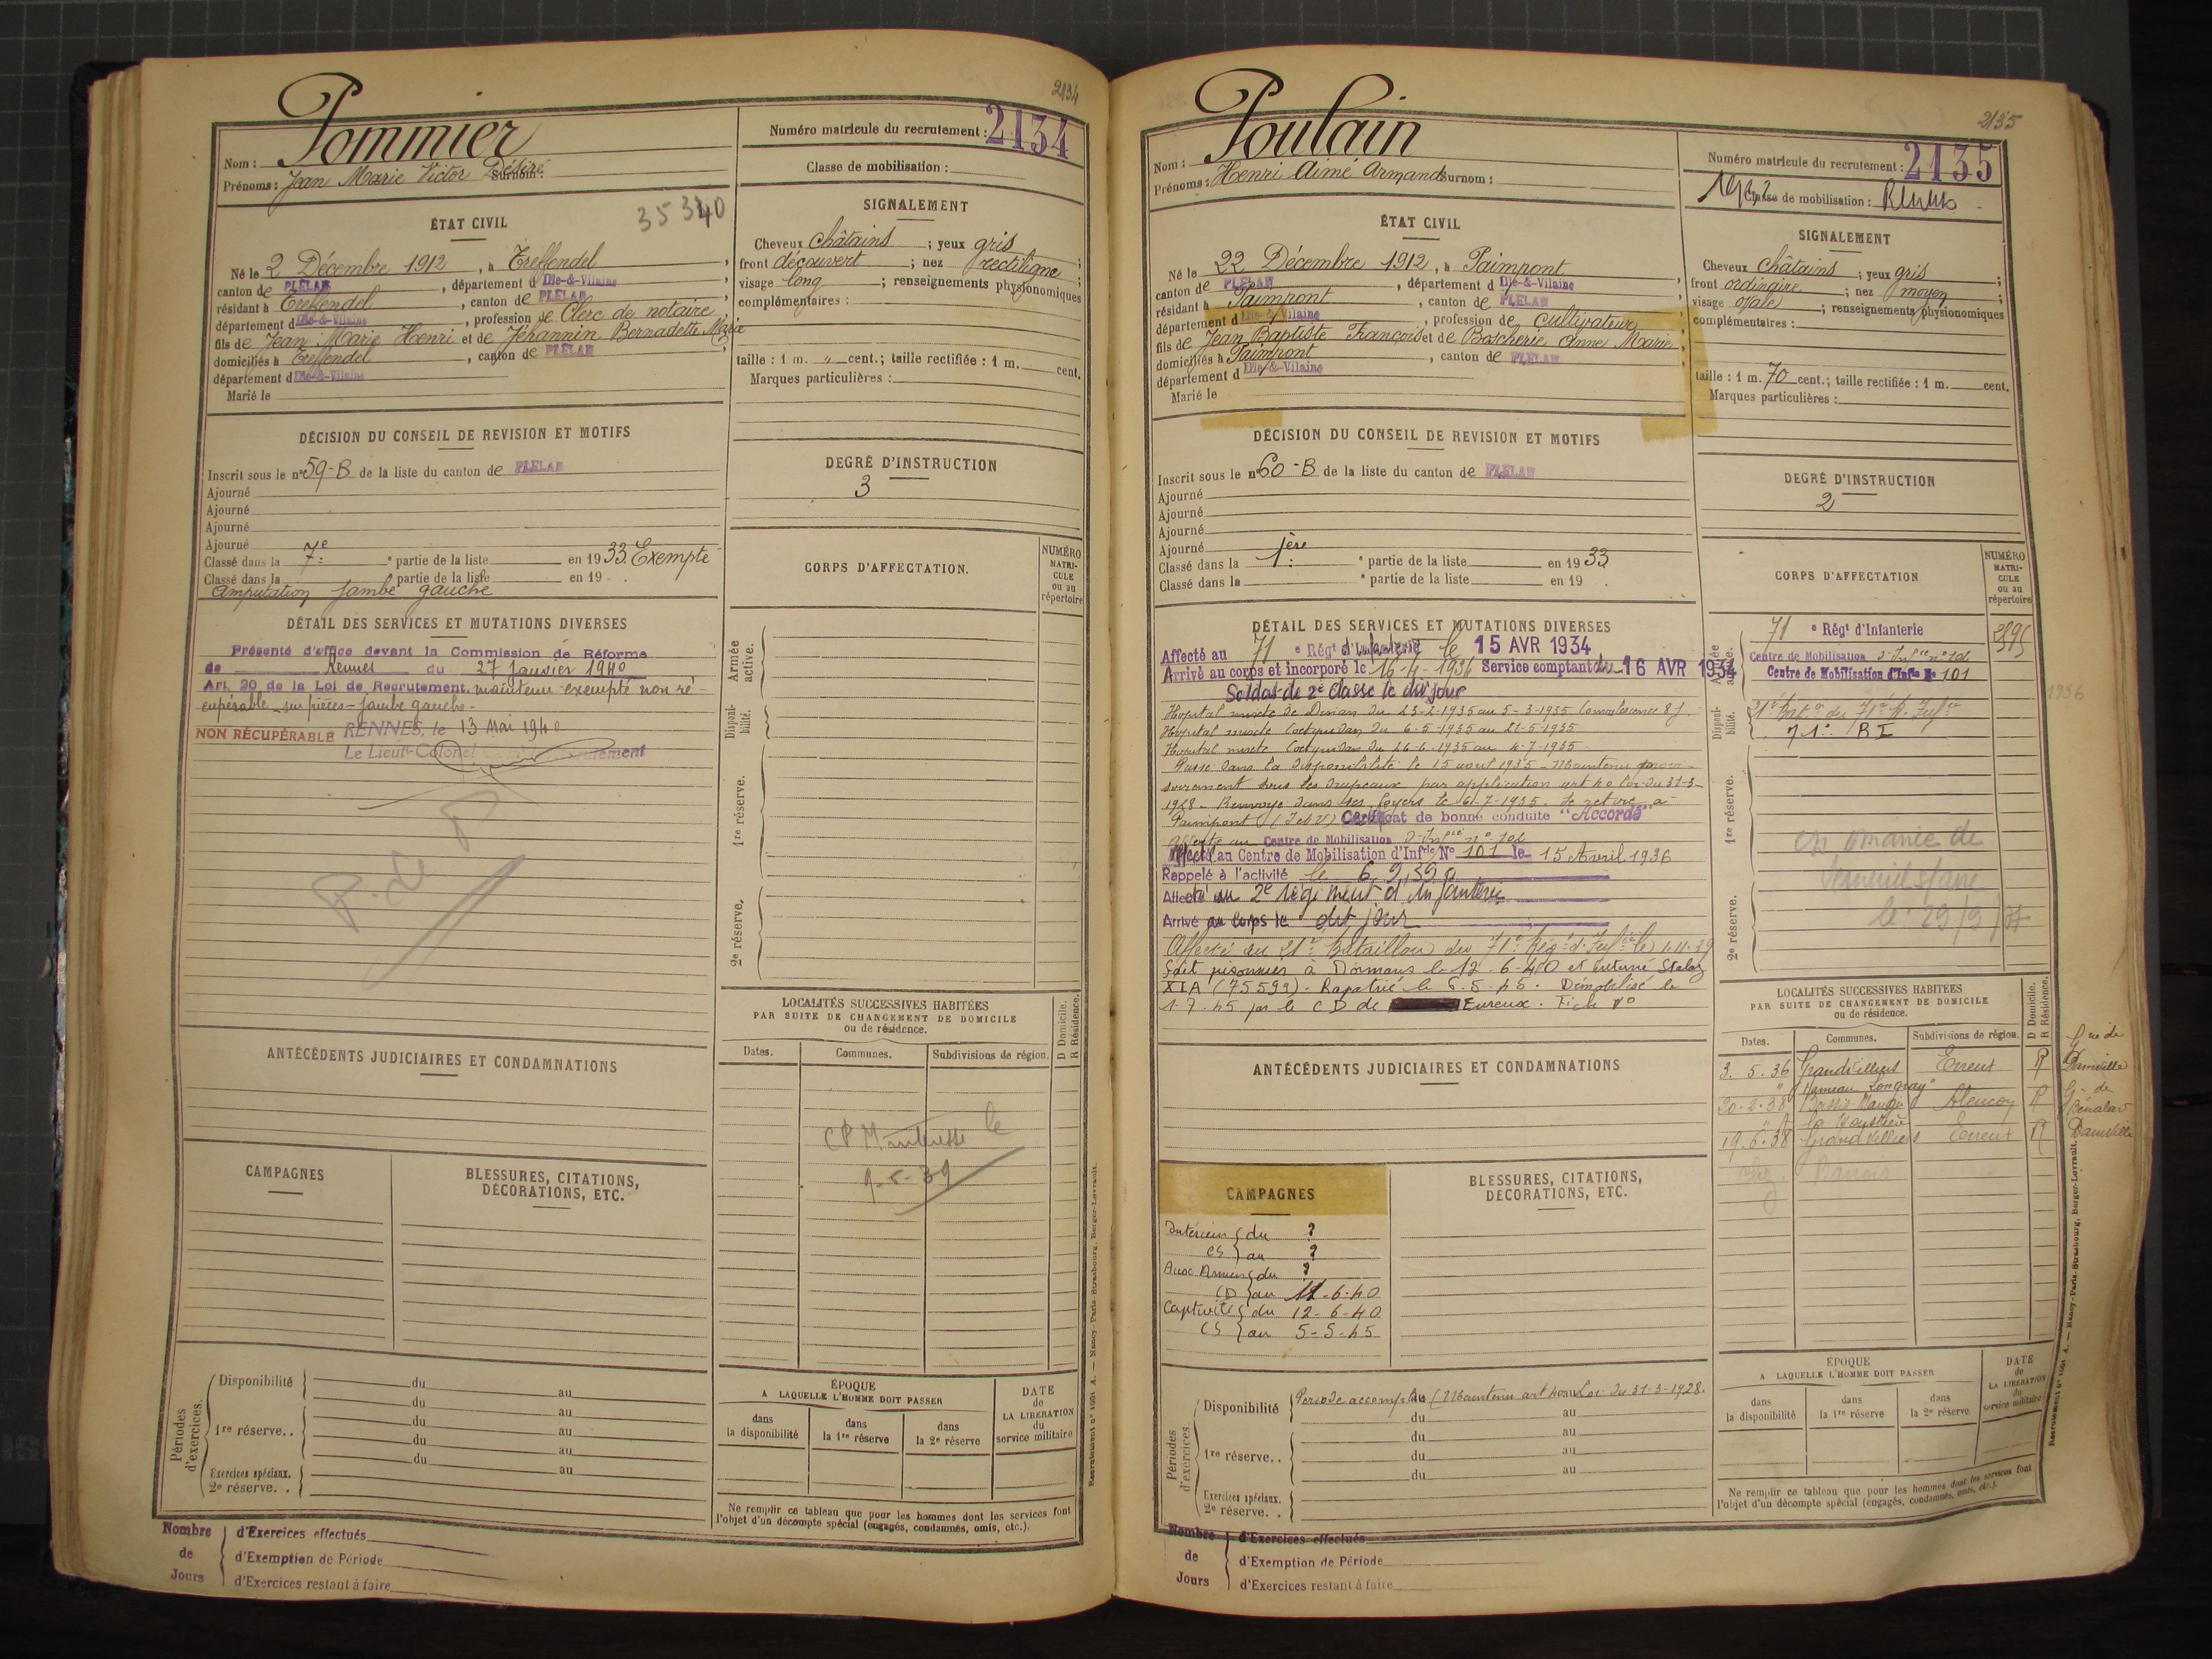 2134
Pommier
Nom :
Prénoms : Jean Marie Victor Désiré Surnom :
Numéro matricule du recrutement : 2134
Classe de mobilisation :
35340
ÉTAT CIVIL
Né le 2 Décembre 1912, à Treffendel,
canton de PLÉLAN, département d Ille-&-Vilaine,
résidant à Treffendel, canton de PLÉLAN,
département d Ille-&-Vilaine, profession de Clerc de notaire,
fils de Jean Marie Henri et de Jéhannin Bernadette Marie
domiciliés à Treffendel, canton de PLÉLAN,
département d Ille-&-Vilaine
Marié le
SIGNALEMENT
Cheveux châtains ; yeux gris ;
front découvert ; nez rectiligne ;
visage long ; renseignements physionomiques
complémentaires :
taille : 1 m. " cent.; taille rectifiée : 1 m. cent.
Marques particulières :
DÉCISION DU CONSEIL DE REVISION ET MOTIFS
Inscrit sous le n° 59-B de la liste du canton de PLÉLAN
Ajourné
Ajourné
Ajourné
Ajourné
Classé dans la 7e ° partie de la liste en 1933 Exempté
Classé dans la partie de la liste en 19 .
Amputation jambe gauche
DEGRÉ D'INSTRUCTION
3
CORPS D'AFFECTATION.
NUMÉRO MATRICULE ou au répertoire
DÉTAIL DES SERVICES ET MUTATIONS DIVERSES
Présenté d'office devant la Commission de Réforme
de Rennes du 27 Janvier 1940
Art. 20 de la Loi de Recrutement. maintenu exempté non ré-
cupérable sur pièces - jambe gauche.
NON RÉCUPÉRABLE RENNES, le 13 Mai 1940
Le Lieut-Colonel
P. de P
Armée active.
Disponibilité.
1re réserve.
2e réserve.
ANTÉCÉDENTS JUDICIAIRES ET CONDAMNATIONS
LOCALITÉS SUCCESSIVES HABITÉES
PAR SUITE DE CHANGEMENT DE DOMICILE
ou de résidence.
D Domicile.
R Résidence.
Dates.
Communes.
Subdivisions de région.
le
9-5-39
CAMPAGNES
BLESSURES, CITATIONS,
DÉCORATIONS, ETC.
Périodes d'exercices.
Disponibilité du au
du au
1re réserve. . du au
du au
du au
Exercices spéciaux.
2e réserve. .
ÉPOQUE
A LAQUELLE L'HOMME DOIT PASSER
dans la disponibilité
dans la 1re réserve
dans la 2e réserve
DATE de LA LIBÉRATION du service militaire
Ne remplir ce tableau que pour les hommes dont les services font
l'objet d'un décompte spécial (engagés, condamnés, omis, etc.).
Nombre de Jours
d'Exercices effectués
d'Exemption de Période
d'Exercices restant à faire
2135
Poulain
Nom :
Prénoms : Henri Aimé Armand Surnom :
Numéro matricule du recrutement : 2135
1932 Classe de mobilisation : Rennes
ÉTAT CIVIL
Né le 22 Décembre 1912, à Paimpont,
canton de PLÉLAN, département d Ille-&-Vilaine,
résidant à Paimpont, canton de PLÉLAN,
département d Ille-&-Vilaine, profession de Cultivateur,
fils de Jean Baptiste François et de Boscherie Anne Marie,
domiciliés à Paimpont, canton de PLÉLAN,
département d Ille-&-Vilaine
Marié le
SIGNALEMENT
Cheveux châtains ; yeux gris ;
front ordinaire ; nez moyen ;
visage ovale ; renseignements physionomiques
complémentaires :
taille : 1 m. 70 cent.; taille rectifiée : 1 m. cent.
Marques particulières :
DÉCISION DU CONSEIL DE REVISION ET MOTIFS
Inscrit sous le n° 60-B de la liste du canton de PLÉLAN
Ajourné
Ajourné
Ajourné
Ajourné
Classé dans la 1ère ° partie de la liste en 1933
Classé dans la ° partie de la liste en 19 .
DEGRÉ D'INSTRUCTION
2
CORPS D'AFFECTATION
NUMÉRO MATRICULE ou au répertoire
71 ° Régt d'Infanterie 2895
Centre de Mobilisation
Centre de Mobilisation d'Infie N° 101
1936
71e BI
DÉTAIL DES SERVICES ET MUTATIONS DIVERSES
Affecté au 71 ° Régt d'Infanterie le 15 AVR 1934
Arrivé au corps et incorporé le 16-4-1934 Service comptant du 16 AVR 1934
Soldat de 2e classe le dit jour
Hopital mixte de Dinan du 23-2-1935 au 5-3-1935 Convalescence 8 j
Hopital mixte Coetquidan du 6-5-1935 au 21-5-1935
Hopital mixte Coetquidan du 26-6-1935 au 4-7-1935
Passé dans la disponibilité le 15 aout 1935 - Maintenu provi-
soirement sous les drapeaux par application art 40 loi du 31-3-
1928 - Renvoyé dans ses foyers le 6-7-1935. Se retire à
Paimpont (I et V) Certificat de bonne conduite "Accordé"
Affecté au Centre de Mobilisation
Affecté au Centre de Mobilisation d'Infrie N° 101 le 15 Avril 1936
Rappelé à l'activité le 6.9.39
Affecté au 2e régiment d'Infanterie
Arrivé au corps le dit jour
Affecté au 21e Bataillon du 71e Régt d'Infie le 1.11.39
Fait prisonnier à Dormans le 12-6-40 et interné Stalag
XIA (75599). Rapatrié le 6.5.45. Démobilisé le
1.7.45 par le CD de Evreux. Fiche
Armée active.
Disponibilité.
1re réserve.
2e réserve.
le 29/9/
ANTÉCÉDENTS JUDICIAIRES ET CONDAMNATIONS
LOCALITÉS SUCCESSIVES HABITÉES
PAR SUITE DE CHANGEMENT DE DOMICILE
ou de résidence.
D Domicile.
R Résidence.
Dates.
Communes.
Subdivisions de région.
3.5.36 Grandvilliers Evreux R Damville
" Hameau Longray"
20.2.38 Alençon R
19.6.38 Grandvilliers Evreux R Damville
CAMPAGNES
Intérieur du ?
CS au ?
Aux Armées du ?
CD au 11-6-40
Captivité du 12-6-40
CS au 5-5-45
BLESSURES, CITATIONS,
DÉCORATIONS, ETC.
Périodes d'exercices
Disponibilité Période accomplie (Maintenu art 40 Loi du 31-3-1928.
du au
1re réserve. . du au
du au
du au
Exercices spéciaux.
2e réserve. .
ÉPOQUE
A LAQUELLE L'HOMME DOIT PASSER
dans la disponibilité
dans la 1re réserve
dans la 2e réserve
DATE de LA LIBÉRATION du service militaire
Ne remplir ce tableau que pour les hommes dont les services font
l'objet d'un décompte spécial (engagés, condamnés, omis, etc.).
Nombre de Jours
d'Exercices effectués
d'Exemption de Période
d'Exercices restant à faire